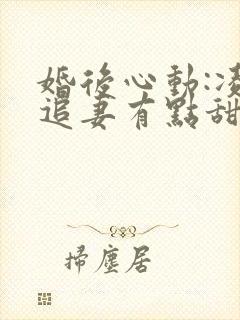 婚後心動:凌
追妻有點甜
掃塵居